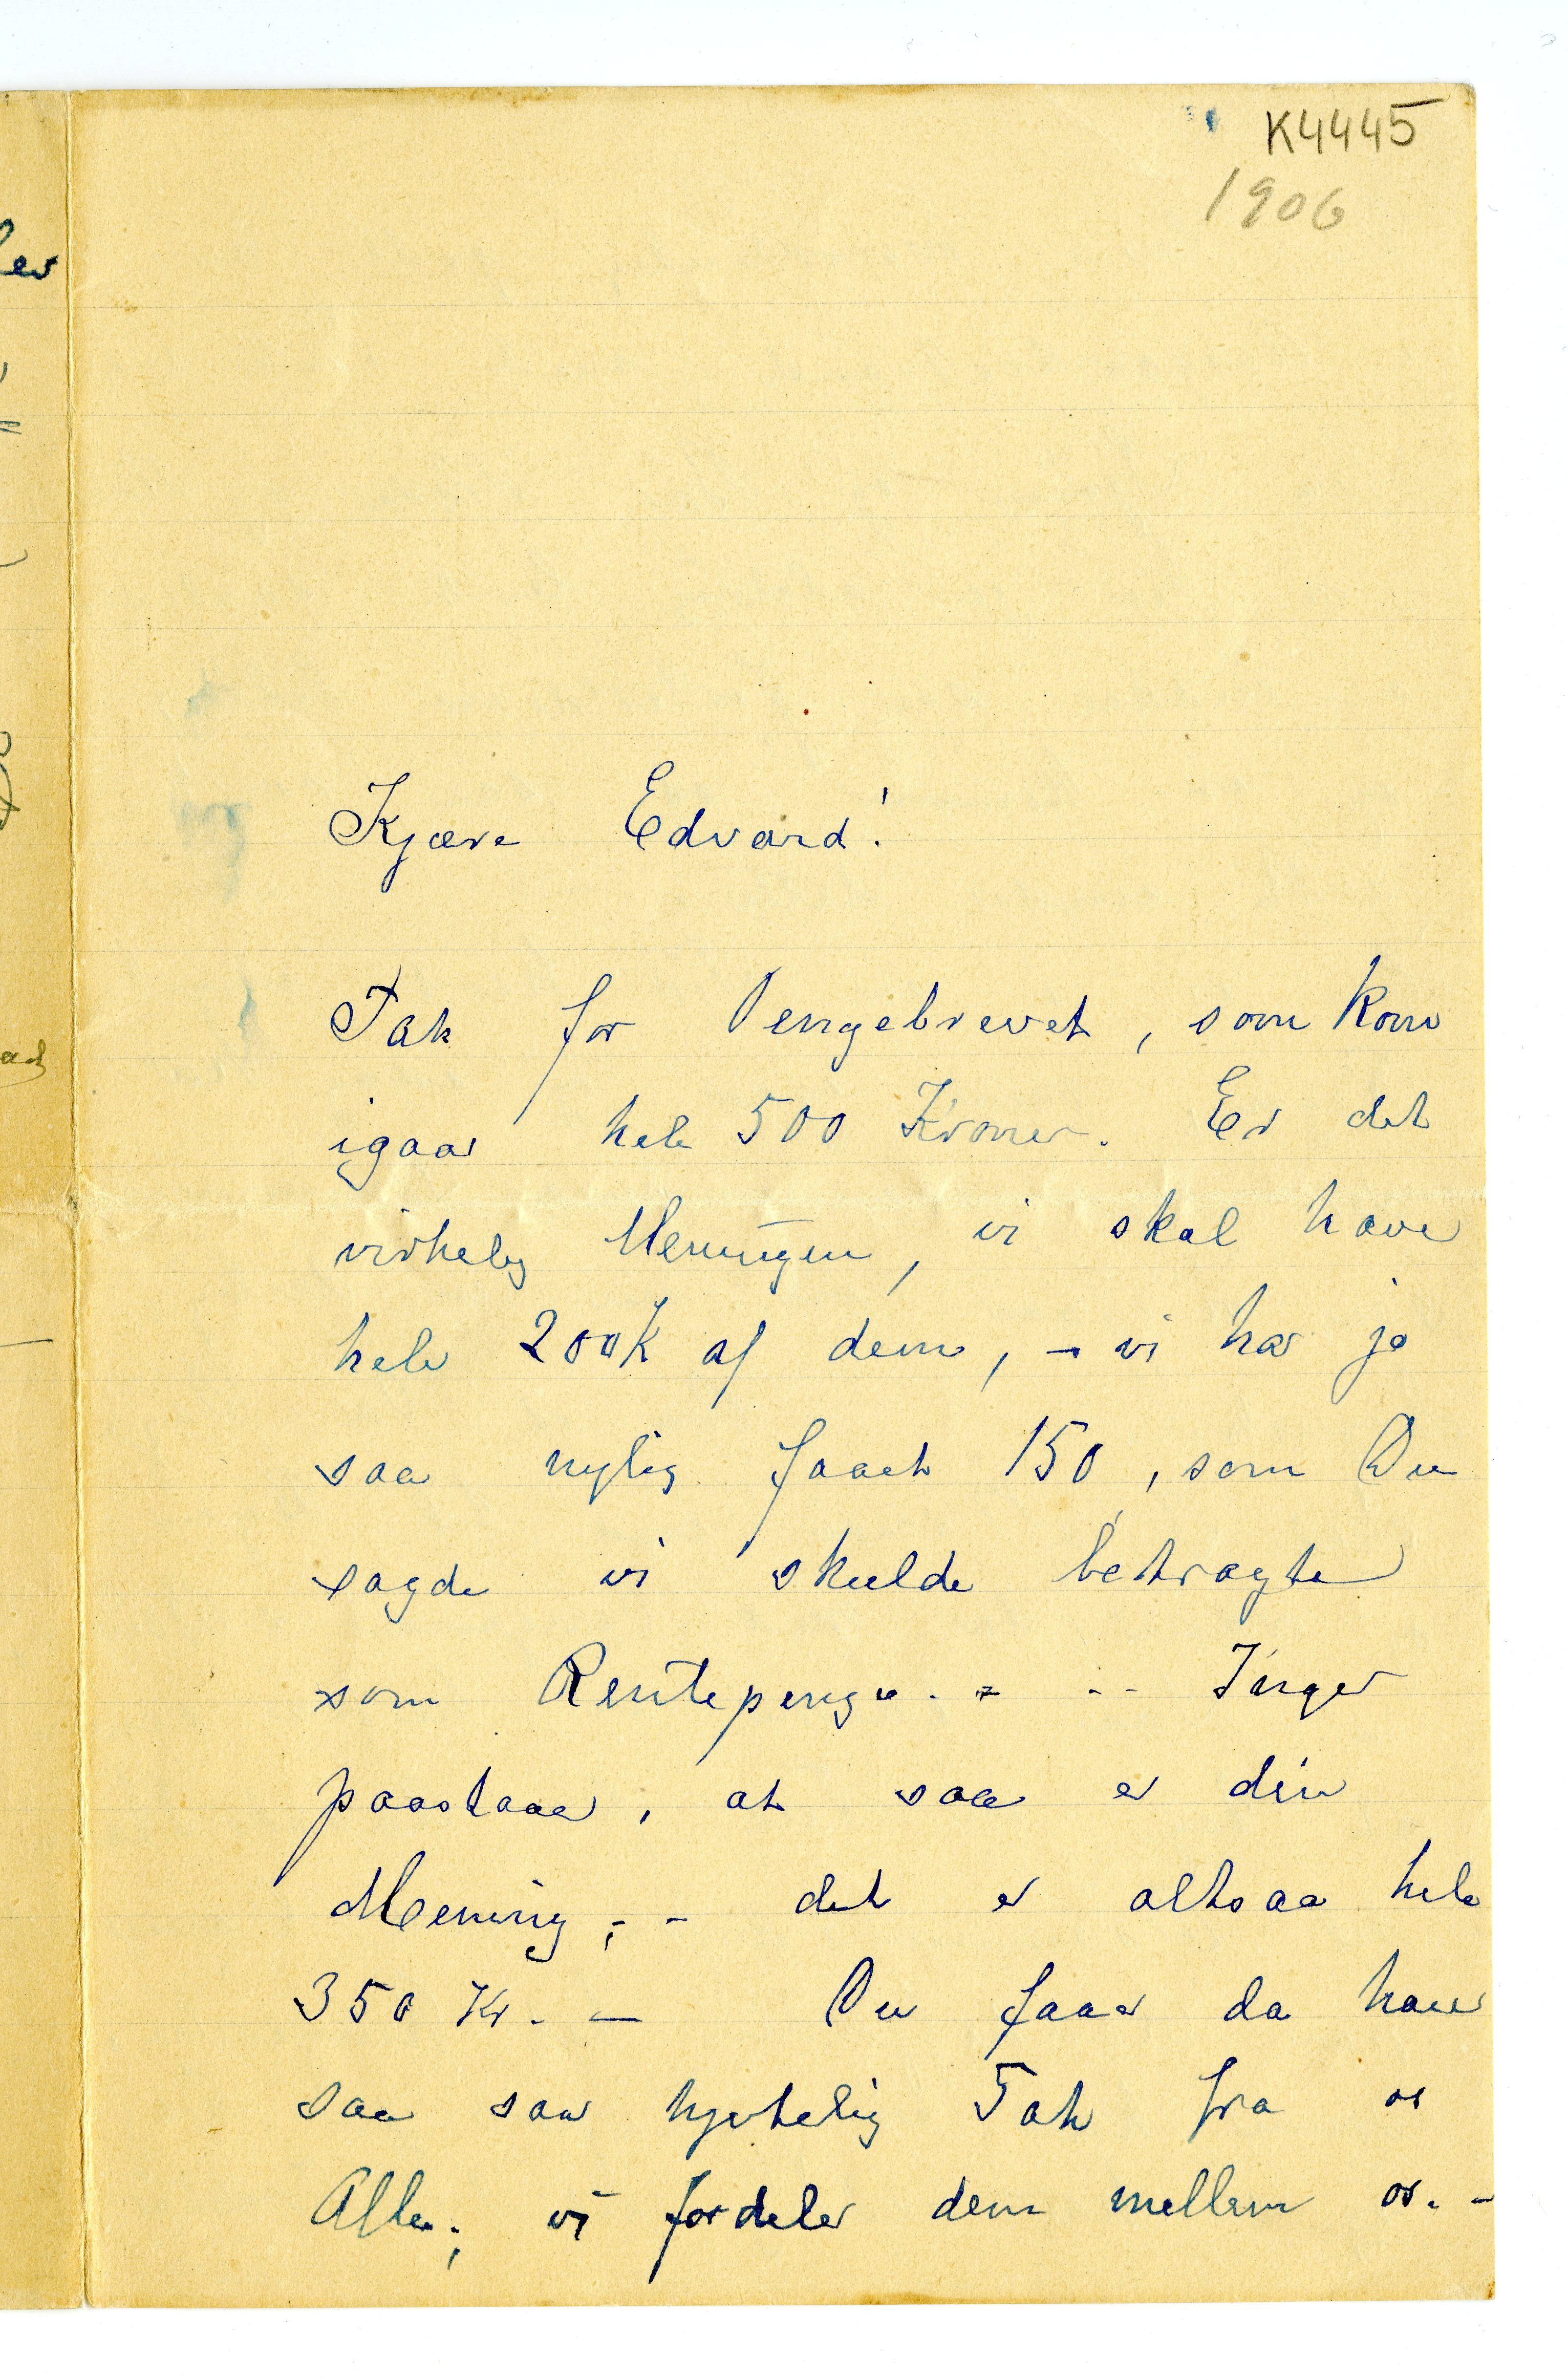 K4445
1906
Kjære Edvard!
Tak for Pengebrevet, som kom
igaar hele 500 Kroner. Er det
virkelig Meningen, vi skal have
hele 200K af dem, – vi har jo
saa nylig faaet 150, som Du
sagde vi skulde betragte
som Rentepenge. – – Inger
paastaar, at saa er din
Mening; – det er altsaa hele
350 Kr. – Du faar da have
saa saa hjertelig Tak fra os
Alle; vi fordeler dem mellem os. –